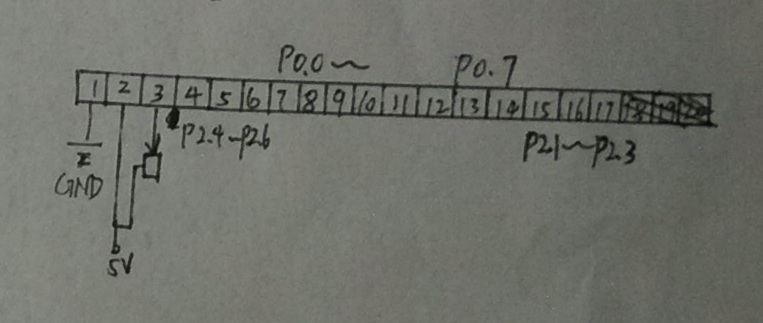 P0.0~ P0.7
1 2 3 4 5 6 7 8 9 10 11 12 13 14 15 16 17 18 19 20
P2.4~P2.6 P2.1~P2.3
GND
5V